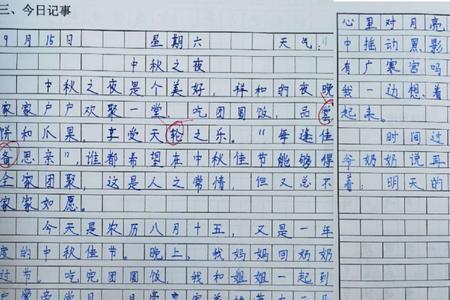 三、今日记事
9月15日 星期六 天气:
中秋之夜
中秋之夜是个美好,祥和的夜晚
家家户户欢聚一堂,吃团圆饭,品
饼和瓜果,享受天轮之乐。"每逢佳
备思亲",谁都希望在中秋佳节能够得
全家团聚,这是人之常情,但又总不
家家如愿。
今天是农历八月十五,又是一年
度的中秋佳节。晚上,我妈妈回奶奶
过节。吃完团圆饭,我和姐姐一起到
心里对月亮
中推动黑影
有广寒宫吗
我一边想着
起来。
时间过
爷奶奶说再
着,明天的